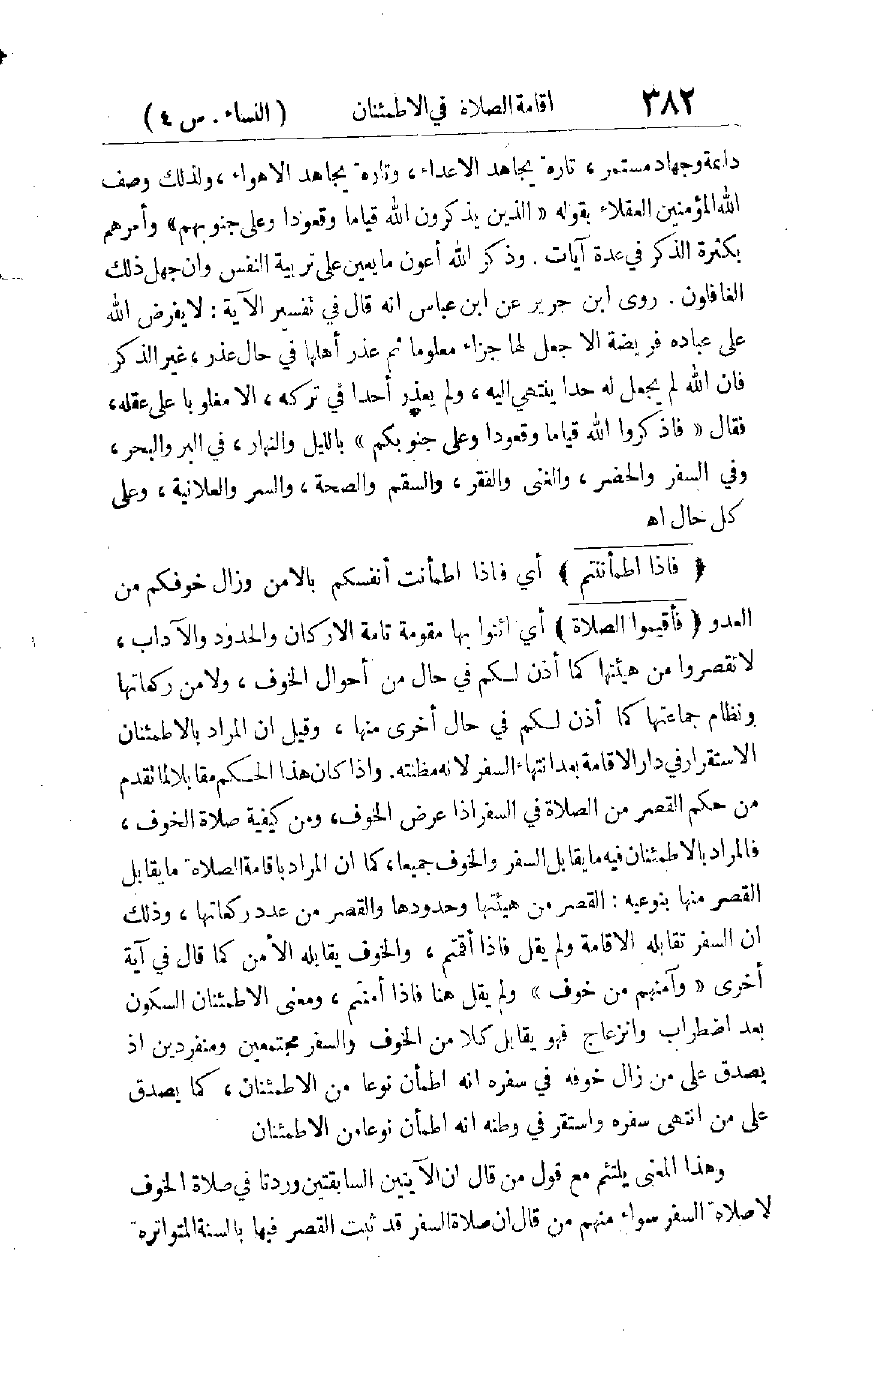 ٣٨٢ اقامة الصلاة في الاطمئنان (النساء . س ٤)
دائمة وجهاد مستمر ، تارة يجاهد الاعداء ، وتارة يجاهد الاهواء ، ولذلك وصف
الله المؤمنين العقلاء بقوله « الذين يذكرون الله قياما وقعودا وعلى جنوبهم » وأمرهم
بكثرة الذكر في عدة آيات . وذكر الله أعون ما يعين على تربية النفس وان جهل ذلك
الغافلون . روى ابن جرير عن ابن عباس انه قال في تفسير الآية : لا يفرض الله
على عباده فريضة الا جعل لها جزاء معلوما ثم عذر أهلها في حال عذر ، غير الذكر
فان الله لم يجعل له حدا ينتهي اليه ، ولم يعذر أحدا في تركه ، الا مغلوبا على عقله ،
فقال « فاذكروا الله قياما وقعودا وعلى جنوبكم » بالليل والنهار ، في البر والبحر ،
وفي السفر والحضر ، والغنى والفقر ، والسقم والصحة ، والسر والعلانية ، وعلى
كل حال اه
﴿ فاذا اطمأننتم ﴾ أي فاذا اطمأنت أنفسكم بالامن وزال خوفكم من
العدو ﴿ فأقيموا الصلاة ﴾ أي ائتوا بها مقومة تامة الاركان والحدود والآداب ،
لا تقصروا من هيئتها كما أذن لكم في حال من أحوال الخوف ، ولا من ركعاتها
ونظام جماعتها كما أذن لكم في حال أخرى منها ، وقيل ان المراد بالاطمئنان
الاستقرار في دار الاقامة بعد انتهاء السفر لانه مظنته . واذا كان هذا الحكم مقابلا لما تقدم
من حكم القصر من الصلاة في السفر اذا عرض الخوف ، ومن كيفية صلاة الخوف ،
فالمراد بالاطمئنان فيه ما يقابل السفر والخوف جميعا ، كما ان المراد باقامة الصلاة ما يقابل
القصر منها بنوعيه : القصر من هيئتها وحدودها والقصر من عدد ركعاتها ، وذلك
ان السفر تقابله الاقامة ولم يقل فاذا أقمتم ، والخوف يقابله الأمن كما قال في آية
أخرى « وآمنهم من خوف » ولم يقل هنا فاذا أمنتم ، ومعنى الاطمئنان السكون
بعد اضطراب وانزعاج فهو يقابل كلا من الخوف والسفر مجتمعين ومنفردين اذ
يصدق على من زال خوفه في سفره انه اطمأن نوعا من الاطمئنان ، كما يصدق
على من انتهى سفره واستقر في وطنه انه اطمأن نوعا من الاطمئنان
وهذا المعنى يلتئم مع قول من قال ان الآيتين السابقتين وردتا في صلاة الخوف
لا صلاة السفر سواء منهم من قال ان صلاة السفر قد ثبت القصر فيها بالسنة المتواترة